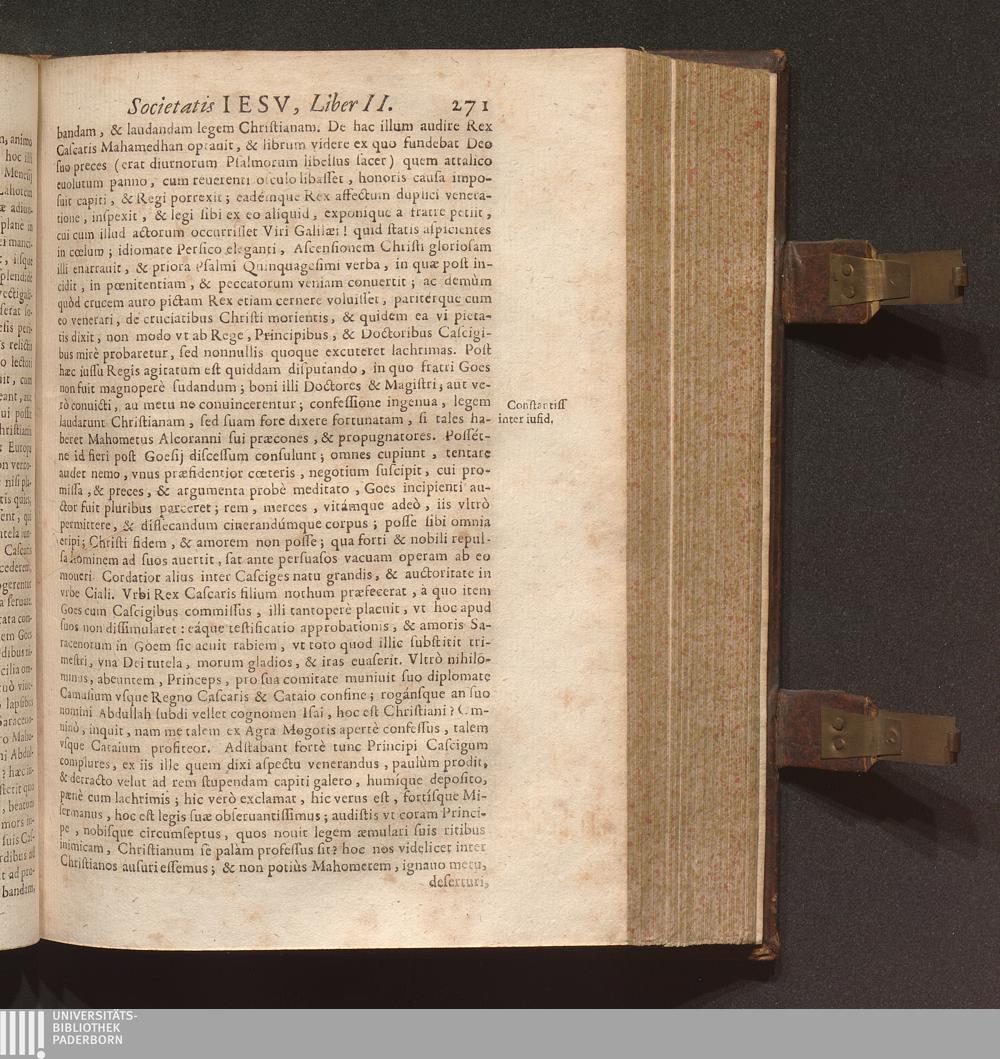 Societatis IESV, Liber II. 271
bandam, & laudandam legem Christianam. De hac illum audire Rex
Cascaris Mahamedhan optauit, & librum videre ex quo fundebat Deo
suo preces (erat diurnorum Psalmorum libellus sacer) quem attalico
euolutum panno, cum reuerenti osculo libasset, honoris causa impo-
suit capiti, & Regi porrexit; eadémque Rex affectum duplici venera-
tione, inspexit, & legi sibi ex eo aliquid, exponique a fratre petiit,
cui cum illud actorum occurrisset Viri Galilæi! quid statis aspicientes
in cœlum; idiomate Persico eleganti, Ascensionem Christi gloriosam
illi enarrauit, & priora Psalmi Quinquagesimi verba, in quæ post in-
cidit, in pœnitentiam, & peccatorum veniam conuertit; ac demùm
quòd crucem auro pictam Rex etiam cernere voluisset, paritérque cum
eo venerari, de cruciatibus Christi morientis, & quidem ea vi pieta-
tis dixit, non modo vt ab Rege, Principibus, & Doctoribus Cascigi-
bus mirè probaretur, sed nonnullis quoque excuteret lachrimas. Post
hæc iussu Regis agitatum est quiddam disputando, in quo fratri Goes
non fuit magnoperè sudandum; boni illi Doctores & Magistri, aut ve-
rò conuicti, au metu ne conuincerentur; confessione ingenua, legem
laudarunt Christianam, sed suam fore dixere fortunatam, si tales ha-
beret Mahometus Alcoranni sui præcones, & propugnatores. Possét-
ne id fieri post Goesij discessum consulunt; omnes cupiunt, tentare
audet nemo, vnus præfidentior cœteris, negotium suscipit, cui pro-
missa, & preces, & argumenta probè meditato, Goes incipienti au-
ctor fuit pluribus parceret; rem, merces, vitámque adeò, iis vltrò
permittere, & dissecandum cinerandúmque corpus; posse sibi omnia
eripi; Christi fidem, & amorem non posse; qua forti & nobili repul-
sa hominem ad suos auertit, sat ante persuasos vacuam operam ab eo
moueri. Cordatior alius inter Casciges natu grandis, & auctoritate in
vrbe Ciali. Vrbi Rex Cascaris filium nothum præfecerat, à quo item
Goes cum Cascigibus commissus, illi tantoperè placuit, vt hoc apud
suos non dissimularet: eáque testificatio approbationis, & amoris Sa-
racenorum in Goem sic acuit rabiem, vt toto quod illic substitit tri-
mestri, vna Dei tutela, morum gladios, & iras euaserit. Vltrò nihilo-
minus, abeuntem, Princeps, pro sua comitate muniuit suo diplomate
Camusium vsque Regno Cascaris & Cataio confine; rogánsque an suo
nomini Abdullah subdi vellet cognomen Isai, hoc est Christiani? Om-
ninò, inquit, nam me talem ex Agra Mogoris apertè confessus, talem
vsque Cataium profiteor. Adstabant fortè tunc Principi Cascigum
complures, ex iis ille quem dixi aspectu venerandus, paulùm prodit,
& detracto velut ad rem stupendam capiti galero, humíque deposito,
pænè cum lachrimis; hic verò exclamat, hic verus est, fortísque Mi-
sermanus, hoc est legis suæ obseruantissimus; audistis vt coram Princi-
pe, nobisque circumseptus, quos nouit legem æmulari suis ritibus
inimicam, Christianum se palàm professus sit? hoc nos videlicet inter
Christianos ausuri essemus; & non potiùs Mahometem, ignauo metu,
deserturi,
Constantiss
inter iusid.
UNIVERSITÄTS-
BIBLIOTHEK
PADERBORN